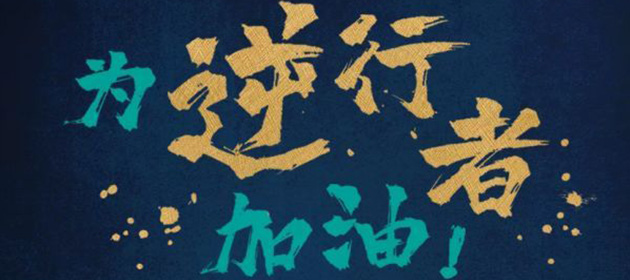 为逆行者
加油!